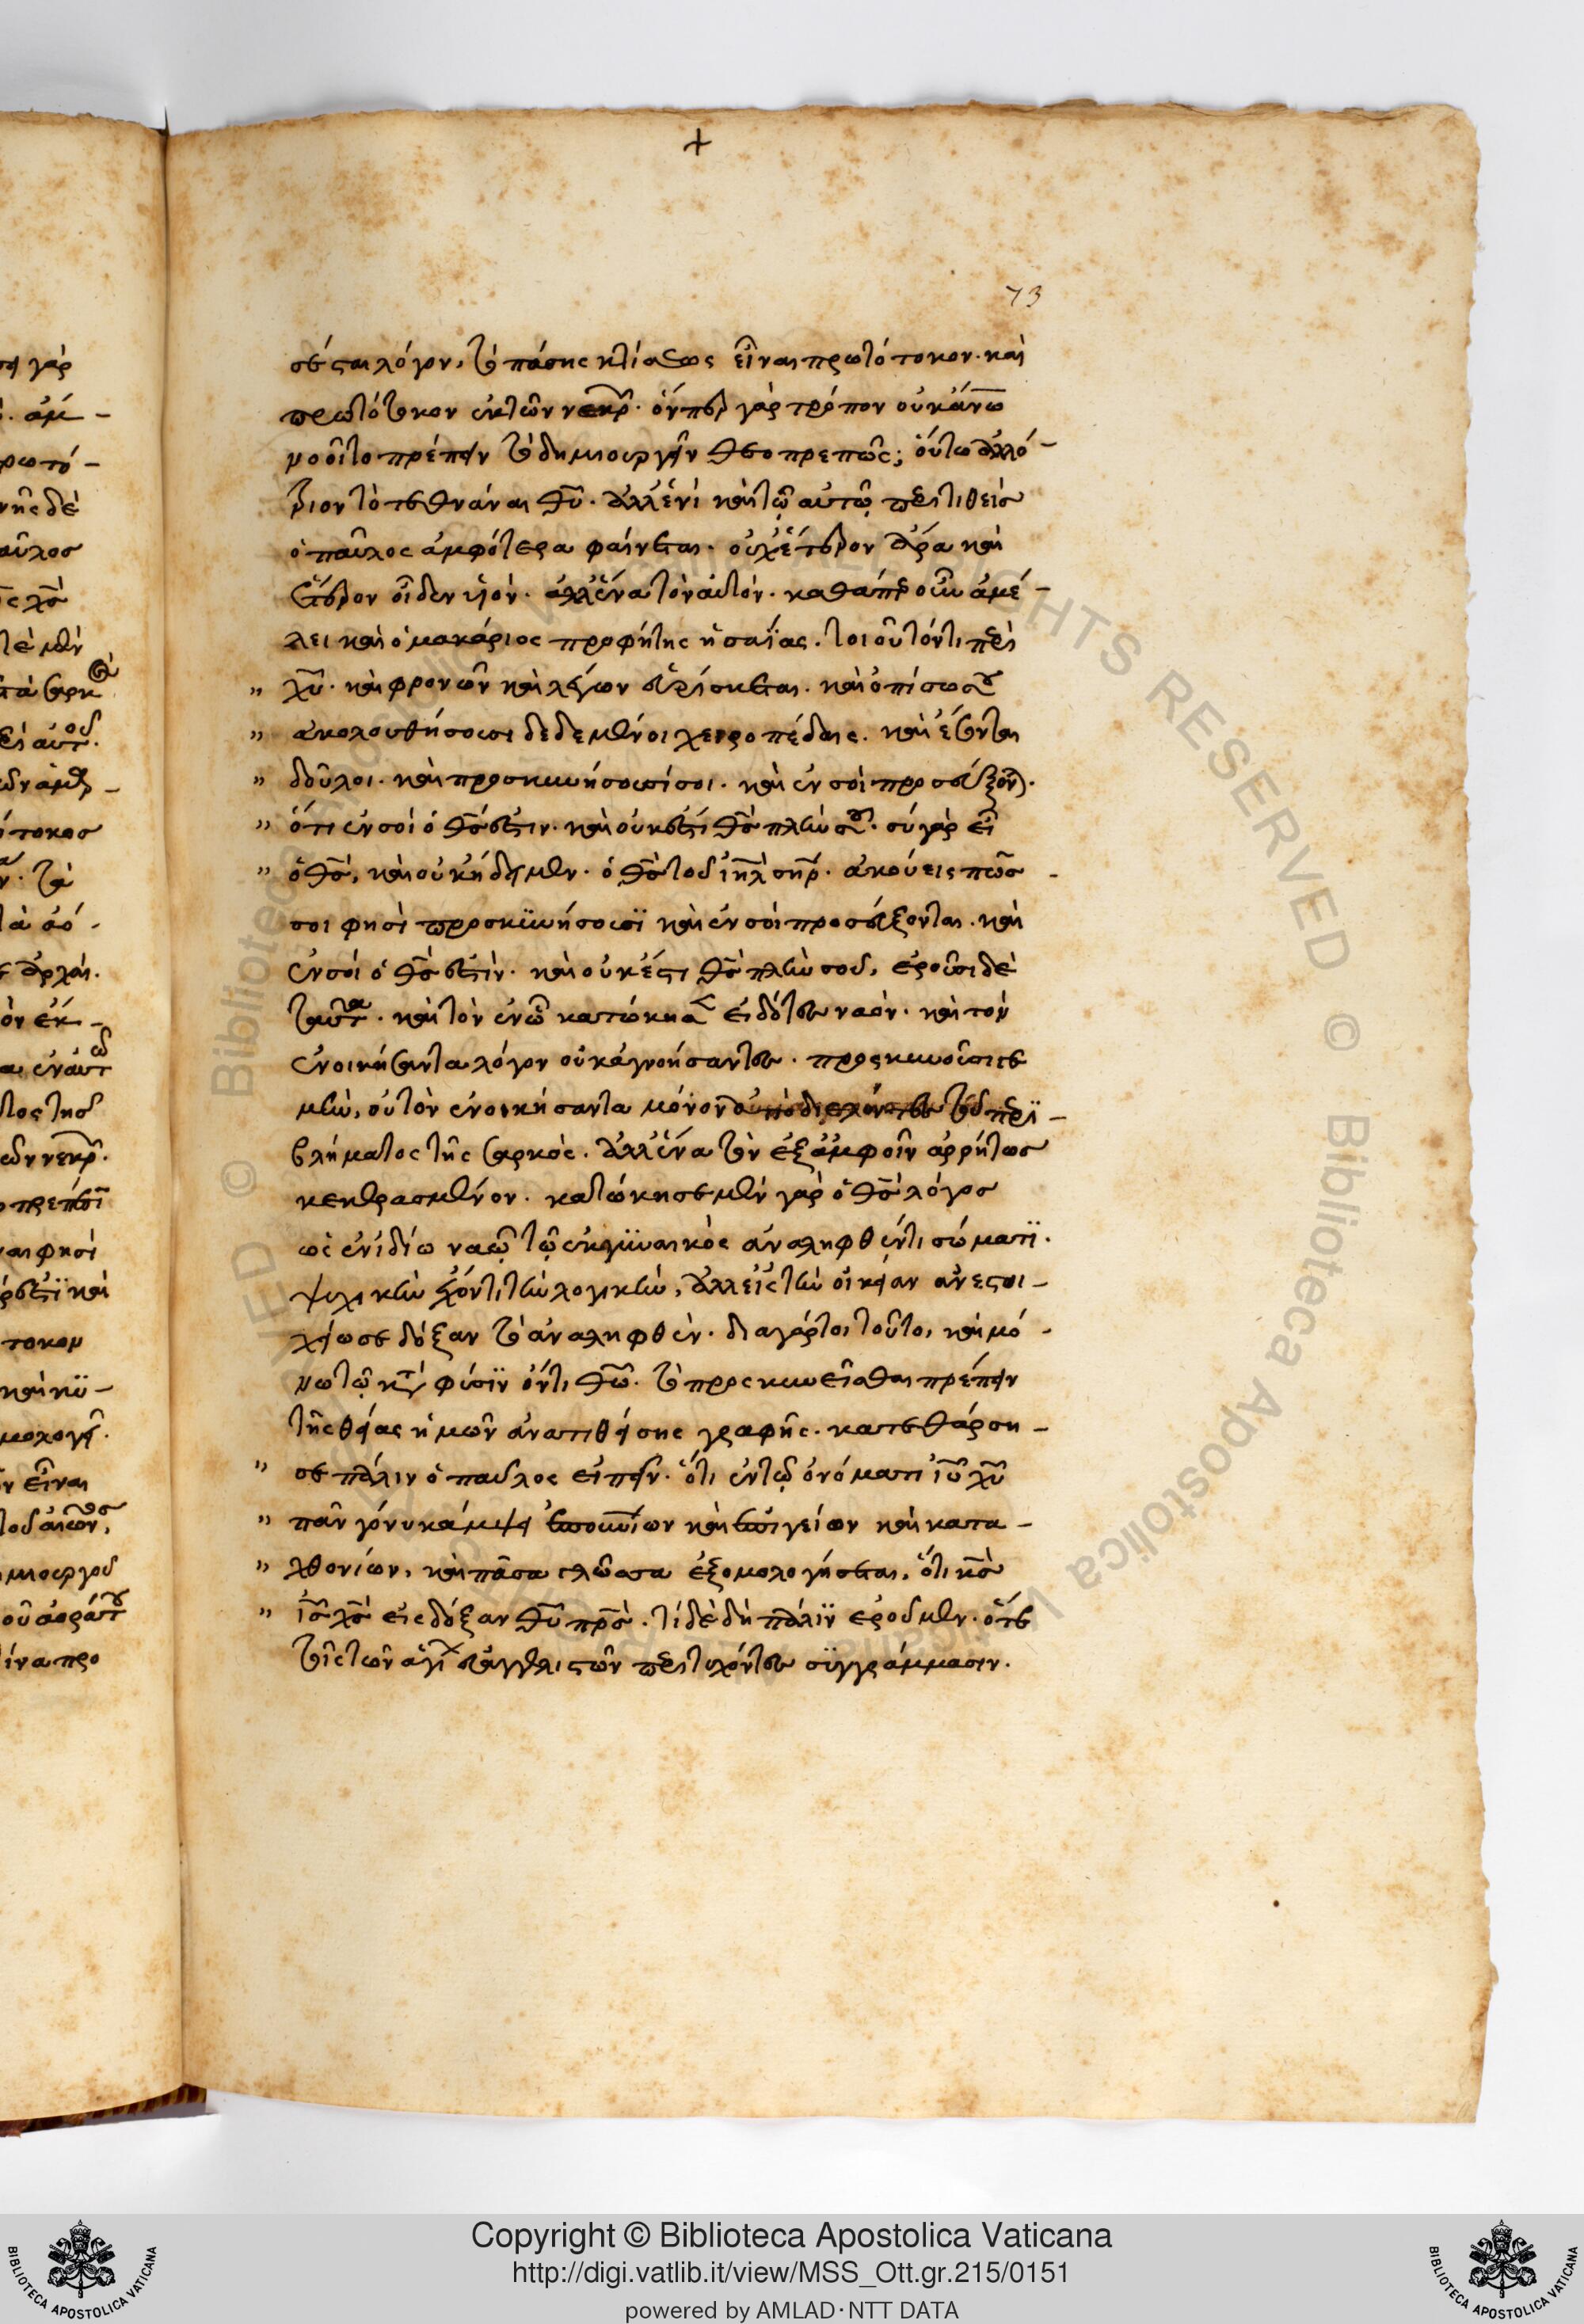 +
73
σέται λόγον, τὸ πάσης κτίσεως εἶναι πρωτότοκον. καὶ
πρωτότοκον ἐκ τῶν νεκρ̃. ὅνπερ γὰρ τρόπον οὐκ ἀν̅ω
μοοῖτο πρέπειν τὸ δημιουργεῖν θεοπρεπῶς; οὕτω ἀλλό-
τριον τὸ τεθνάναι θῡ. ἀλλ' ἑνὶ καὶ τῷ αὐτῷ περιτιθεὶς
ὁ παῦλος ἀμφότερα φαίνεται. οὐχ' ἕτερον ἄρα καὶ
ἕτερον οἶδεν υἱόν. ἀλλ' ἕνα τὸν αὐτόν. καθάπερ οὖν ἀμέ-
λει καὶ ὁ μακάριος προφήτης ἡσαΐας. τοιοῦτόν τι περὶ
" χῡ. καὶ φρονῶν καὶ λέγων εὑρίσκεται. καὶ ὀπίσω σου
" ἀκολουθήσουσι δεδεμένοι χειροπέδαις. καὶ ἔσονται
" δοῦλοι. καὶ προσκυνήσουσί σοι. καὶ ἐν σοὶ προσεύξον).
" ὅτι ἐν σοὶ ὁ θς̄ ἐστιν. καὶ οὐκ ἔστι θς̄ πλὴν σοῦ. σὺ γὰρ εἶ
" ὁ θς̄, καὶ οὐκ ᾔδειμεν. ὁ θς̄ τοῦ ιη̄λ ση̄ρ. ἀκούεις πῶς
σοι φησὶ προσκϋνήσουσϊ καὶ ἐν σοὶ προσεύξονται. καὶ
ἐν σοὶ ὁ θς̄ ἐστὶν. καὶ οὐκ ἔστι θς̄ πλὴν σοῦ, εροῦσι δὲ
ταῦτα. καὶ τὸν ἐν ᾧ κατώκησε εἰδότες ναόν. καὶ τὸν
ἐνοικήσαντα λόγον οὐκ ἀγνοήσαντες. προσκυνοῦσί τε
μὴν, οὐ τὸν ἐνοικήσαντα μόνον ὑποδιελόντες τοῦ περϊ-
βλήματος τῆς σαρκὸς. ἀλλ' ἕνα τὸν ἐξ ἀμφοῖν ἀρρήτως
κεκερασμένον. κατώκησε μὲν γὰρ ὁ θς̄ λόγος
ὡς ἐν ἰδίω ναῷ τῷ ἐκ γϋναικὸς ἀναληφθέντι σώματϊ.
ψυχικὴν ἔχοντι τὴν λογικὴν, ἀλλ' εἰς τὴν οἰκείαν ἀνεστοι-
χείωσε δόξαν τὸ ἀναληφθὲν. διαγάρτοι τοῦτο, καὶ μό-
νω τῷ κατὰ φύσϊν ὄντι θῶ. τὸ προσκυνεῖσθαι πρέπειν
τῆς θείας ἡμῶν ἀνατιθείσης γραφῆς. κατεθάρση-
" σε πάλιν ὁ παῦλος εἰπεῖν. ὅτι ἐν τῷ ὀνόματι ιῡ χῡ
" πᾶν γόνυ κάμψει ἐπουρανίων καὶ ἐπιγείων καὶ κατα-
" χθονίων, καὶ πᾶσα γλῶσσα ἐξομολογήσεται, ὅτι κς̄
" ις̄ χς̄ εἰς δόξαν θῡ πρς̄. τί δὲ δὴ πάλϊν ἐροῦμεν. ὅτε
τοῖς τῶν ἁγί εὐαγγελιστῶν περιτυχόντες σϋγγράμμασιν.
Copyright © Biblioteca Apostolica Vaticana
http://digi.vatlib.it/view/MSS_Ott.gr.215/0151
powered by AMLAD·NTT DATA